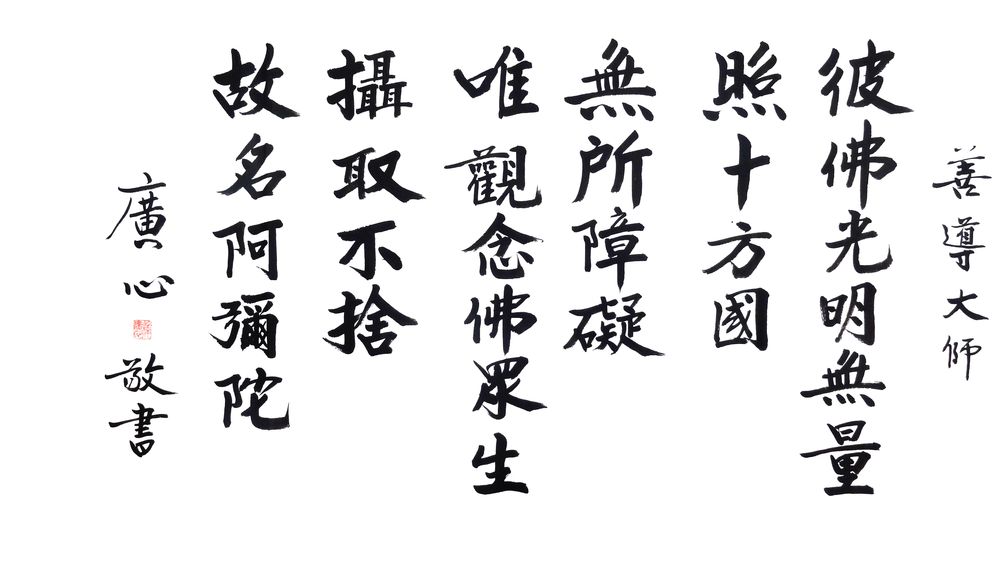 善導大師
彼佛光明無量
照十方國
無所障礙
唯觀念佛眾生
攝取不捨
故名阿彌陀
廣心
敬書